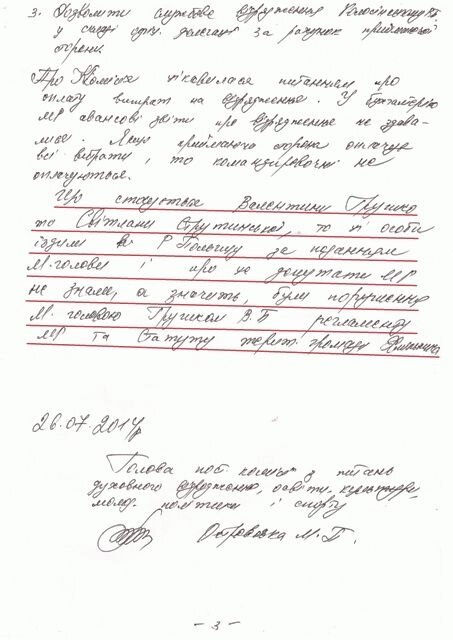 3. Дозволити службове відрядження
у складі делегації за рахунок приймаючої
сторони.
Про цікавилася питанням про
оплату витрат на відрядження. У бухгалтерію
МР авансові звіти про відрядження не здава-
лися. Якщо приймаюча сторона оплачує
всі витрати, то командировочні не
оплачуються.
Що стосується Валентини Пушко
та Світлани, то ці особи
їздили в Р Польщу за поданням
М. голови і про це депутати МР
не знали, а значить, були порушення
М. головою Пушком В.Б регламенту
МР та Статуту терит. громади
26.07.2014р
Голова пост. комісії з питань
духовного відродження, освіти, культури,
молод. політики і спорту
Островська М. Б.
- 3 -